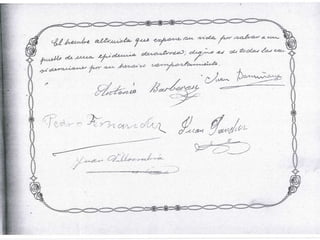 El hombre altruista que expone su vida por salvar a un
pueblo de una epidemia desastrosa, digno es de todas las con
sideraciones por su heroico comportamiento.
Antonio Barberan Juan
Pedro Fernandez Juan Sanchez
Juan Villarrubia